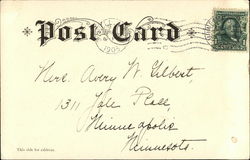 Post Card
1905
Avery W. Gilbert,
1311 Yale Place,
Minneapolis
Minnesota.
This side for address.